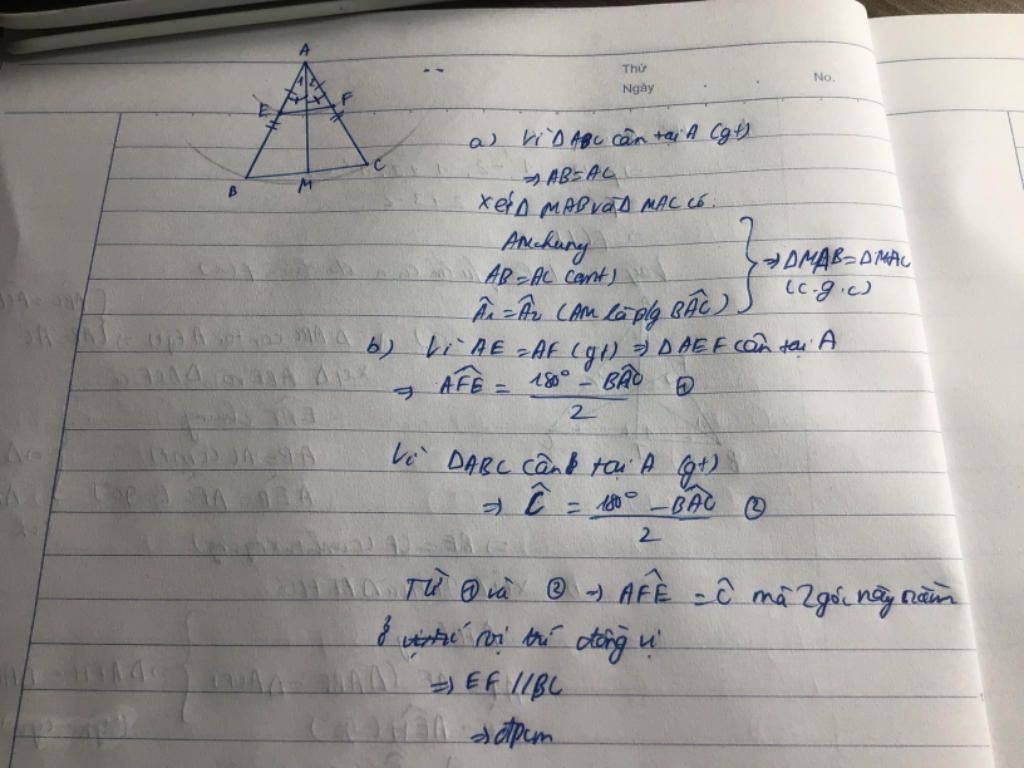 A
1 2
E F
B M C
Thứ
Ngày
No.
a) Vì ΔABC cân tại A (gt)
⇒ AB = AC
Xét Δ MAB và Δ MAC có:
AM chung
AB = AC (cmt)
Â₁ = Â₂ (AM là p/g BÂC)
⇒ ΔMAB = ΔMAC
(c.g.c)
b) Vì AE = AF (gt) ⇒ ΔAEF cân tại A
⇒ AF̂E = (180° - BÂC)/2 ①
Vì ΔABC cân tại A (gt)
⇒ Ĉ = (180° - BÂC)/2 ②
Từ ① và ② ⇒ AF̂E = Ĉ mà 2 góc này nằm
ở vị trí đồng vị
⇒ EF // BC
⇒ đpcm